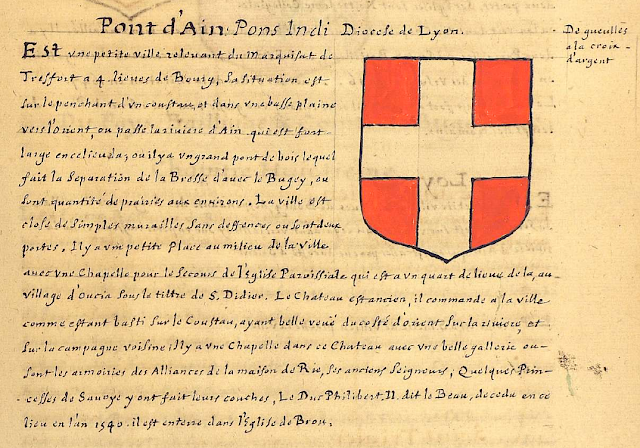 Pont d'Ain: Pons Indi Diocese de Lyon.
De gueulles
a la croix
d'argent
Est une petite ville relevant du Marquisat de
Tresfort a 4. lieues de Bourg, sa situation est
sur le penchant d'un coustau, et dans une basse plaine
vers l'orient, ou passe la riviere d'Ain qui est fort
large en ce lieu la, ou il y a un grand pont de bois lequel
fait la Separation de la Bresse d'avec le Bugey, ou
sont quantité de prairies aux environs. La ville est
close de simples murailles sans deffences ou sont deux
portes. Il y a un petite Place au milieu de la ville
avec une Chapelle pour le secours de l'Eglise Paroissiale qui est a un quart de lieue de la, au
village d'Oucia sous le tiltre de S. Didier. Le Chateau est ancien, il commande a la ville
comme estant basti sur le Coustau, ayant belle veuë du costé d'orient sur la riviere, et
sur la campagne voisine il y a une Chapelle dans ce Chateau avec une belle gallerie ou
sont les armoiries des Alliances de la maison de Rie, ses anciens Seigneurs; Quelques Prin-
cesses de Savoye y ont fait leurs couches, Le Duc Philibert II. dit le Beau, deceda en ce
lieu en l'an 1540. il est enterré dans l'Eglise de Brou.